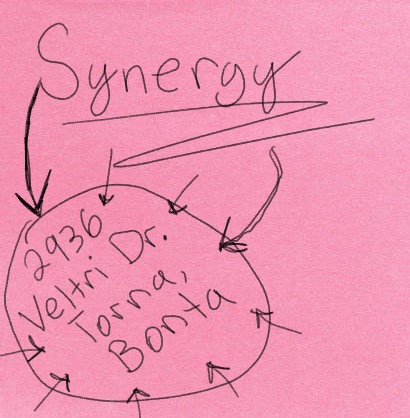 Synergy
2936
Veltri Dr.
Torna,
Bonta